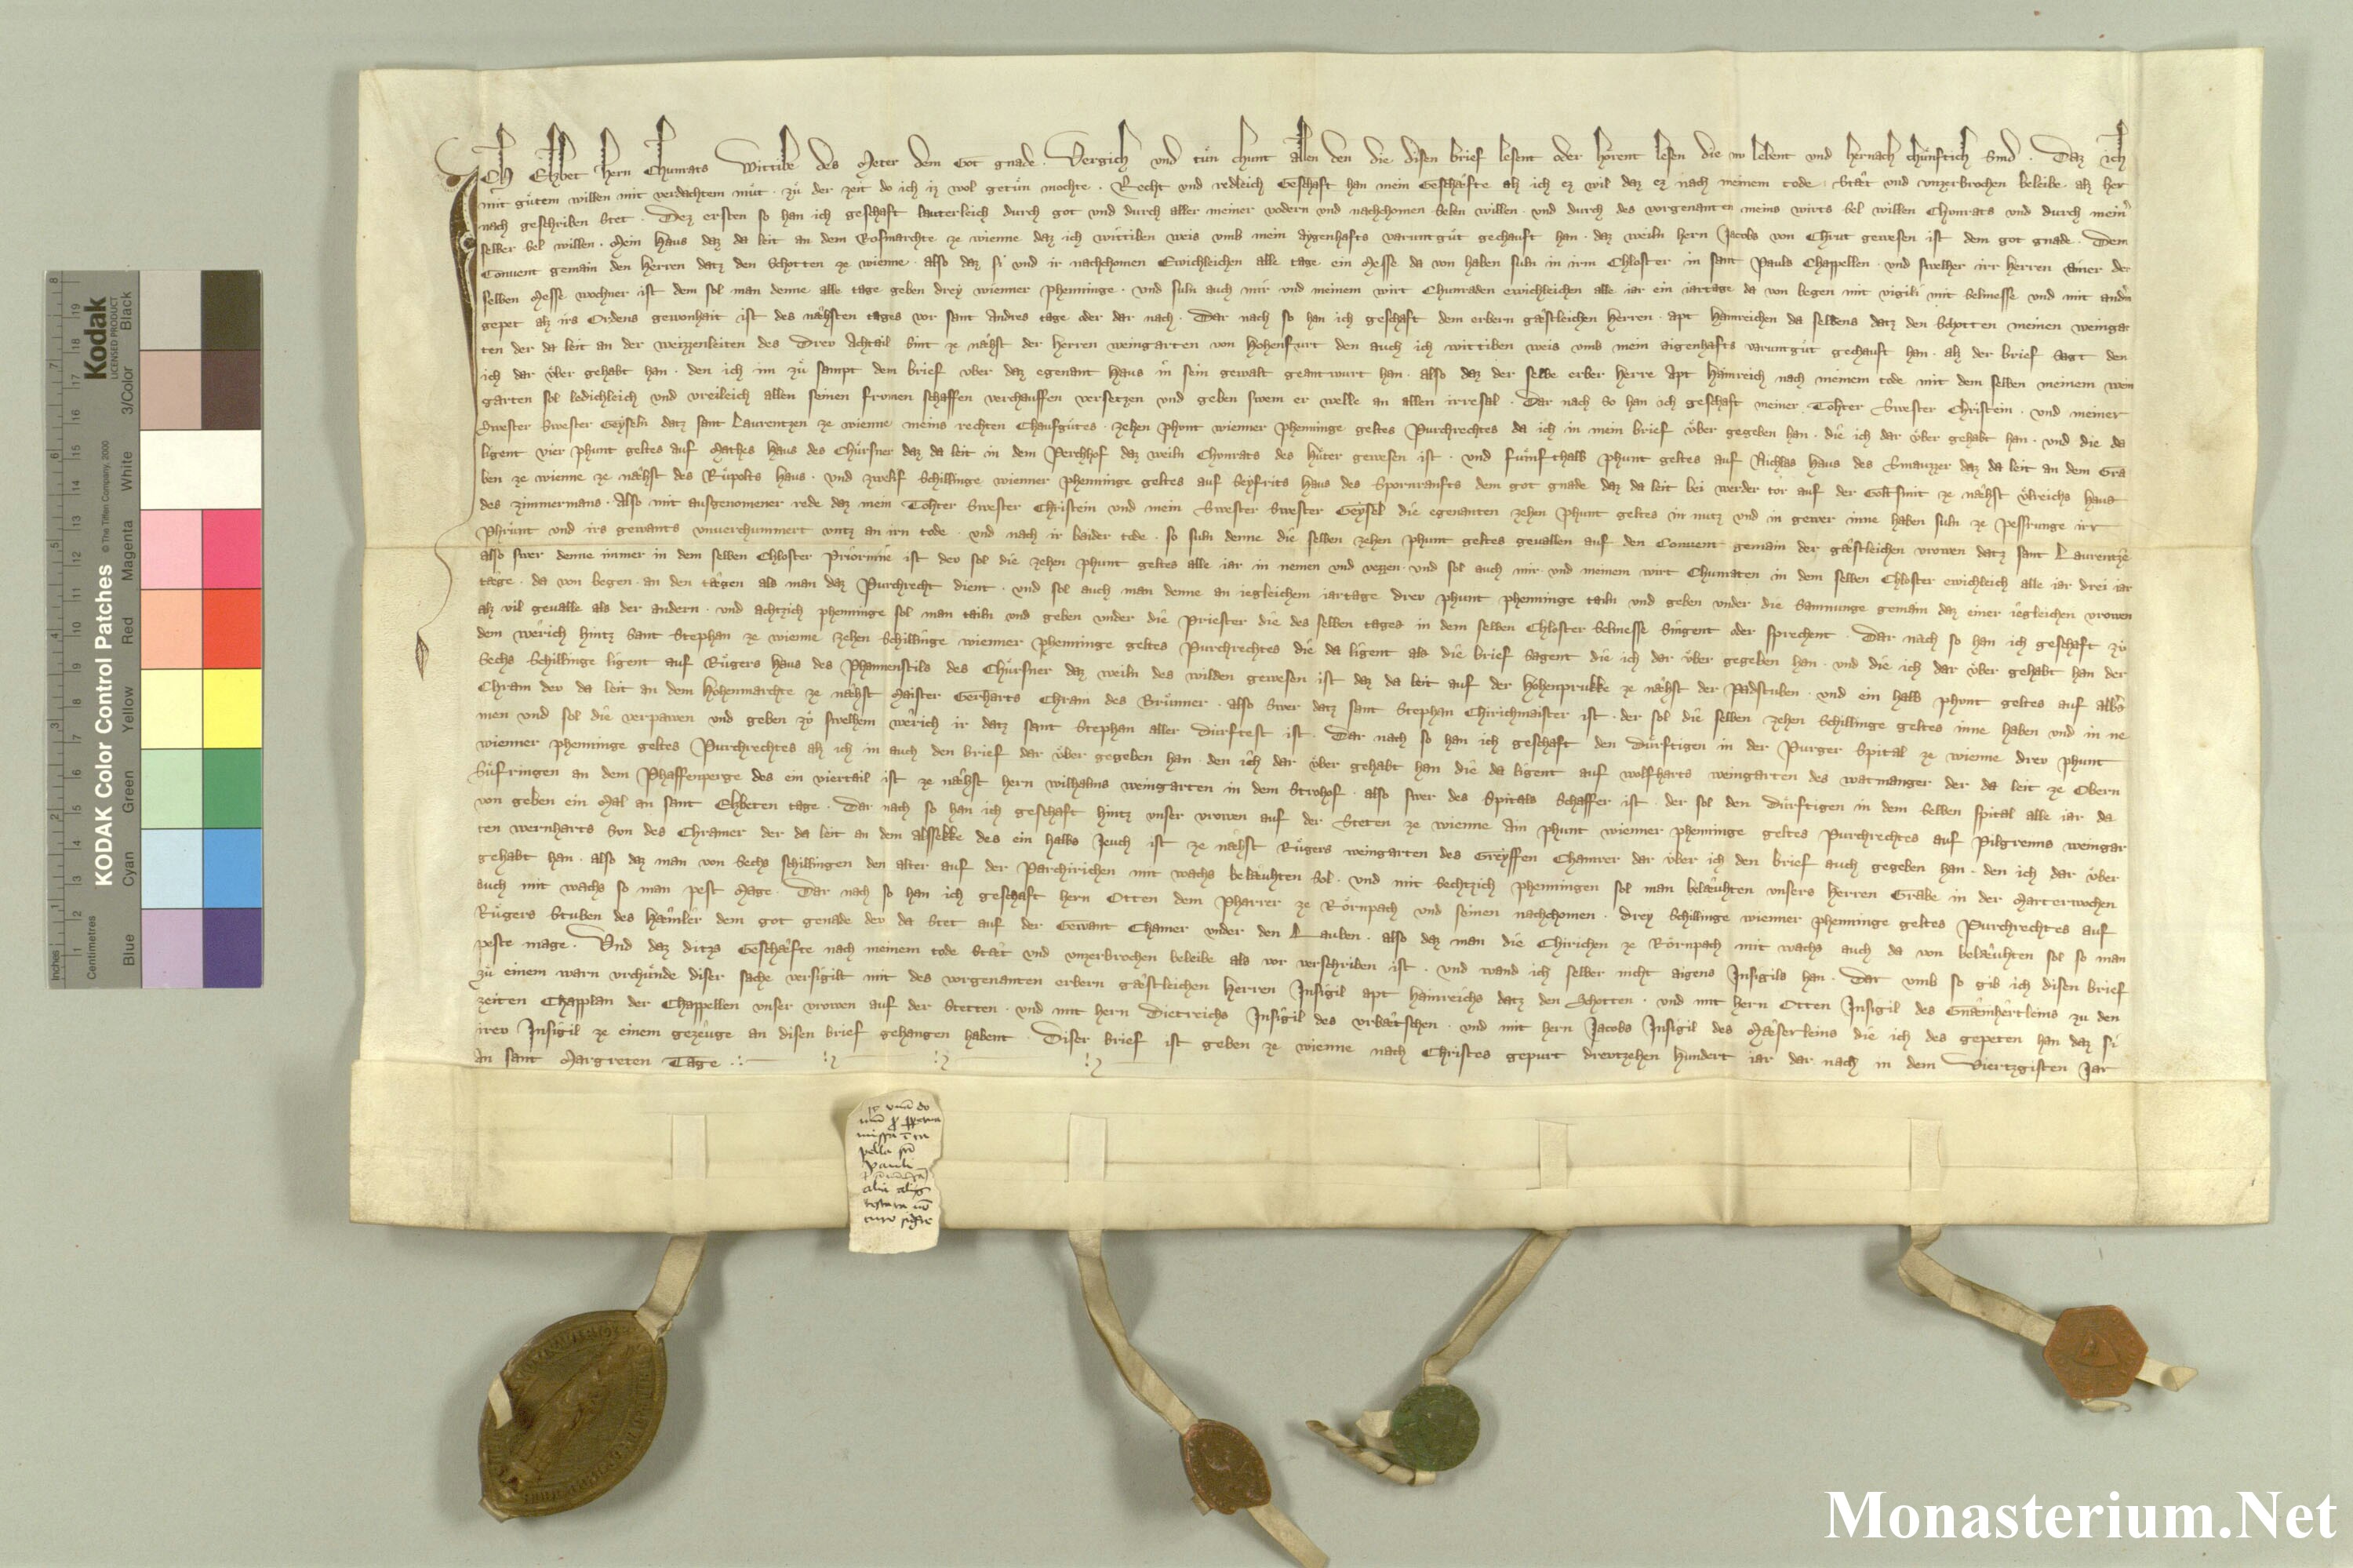 Ich Elzbet hern Chunrats Wittibe des Meter dem Got gnade. Vergich vnd tůn chunt allen den die disen brief lesent oder horent lesen die nv lebent vnd hernach chůnftich sind. Daz ich
mit gůtem willen mit verdachtem můt. zů der zeit do ich iz wol getůn mochte. Recht vnd redleich Geschaft han mein Geschefte alz ich ez wil daz ez nach meinem tode. Stet vnd vnzerbrochen beleibe. alz her
nach geschriben stet. Dez ersten so han ich geschaft lauterleich durch got vnd durch aller meiner vodern vnd nachchomen selen willen. vnd durch des vorgenanten meins wirts sel willen Chunrats vnd durch meiner
selber sel willen. Mein Haus daz da leit an dem Rosmarchte ze wienne daz ich wittiben weis vmb mein aygenhafts varuntgůt gechauft han. daz weiln hern Jacobs von Chrut gewesen ist dem got gnade. Dem
Conuent gemain den Herren datz den Schotten ze wienne. also daz si vnd ir nachchomen Ewichleichen alle tage ein Messe da von haben suln in irm Chloster in sant Pauls Chappellen. vnd swelher irr herren ainer der
selben Messe wochner ist dem sol man denne alle tage geben drey wienner phenninge. vnd suln auch mir vnd meinem wirt Chunraden ewichleichen alle iar ein iartage da von begen mit vigili mit selmesse vnd mit andern
gepet alz irs Ordens gewonhait ist des nehsten tages vor sant Andres tage oder dar nach. Dar nach so han ich geschaft dem erbern gæstleichen herren. apt Hainreichen da selbens datz den Schotten meinen weingar
ten der da leit an der weizzenleiten des Drev Achtail sint ze nehst der Herren weingarten von Hohenfurt den auch ich wittiben weis vmb mein aigenhafts varuntgůt gechauft han. alz der brief sagt den
ich dar vber gehabt han. den ich im zů sampt dem brief vber daz egenant Haus in sein gewalt geantwurt han. also daz der selbe erber herre Apt Hainreich nach meinem tode mit dem selben meinem wein
garten sol ledichleich vnd vreileich allen seinen frumen schaffen verchauffen versetzen vnd geben swem er welle an allen irresal. Dar nach so han ich geschaft meiner Tohter Swester Christein. vnd meiner
Swester Swester Geyseln datz sant Laurentzen ze wienne meins rechten Chaufgůtes. zehen phunt wienner phenninge geltes Purchrechtes da ich in mein brief vber gegeben han. die ich dar vber gehabt han. vnd die da
ligent vier phunt geltes auf Mathes haus des Chursner daz da leit in dem Perchhof daz weiln Chunrats des Hůter gewesen ist. vnd funfthalb phunt geltes auf Nichlas haus des Smauzzer daz da leit an dem Gra
ben ze wienne ze nehst des Růpolts haus. vnd zwelif Schillinge wienner phenninge geltes auf Seyfrits haus des Spornranfts dem got gnade daz da leit bei werder tor auf der Goltsmit ze nehst Vlreichs haus
des zimmermans. Also mit ausgenomener rede daz mein Tohter Swester Christein vnd mein Swester Swester Geysel die egenanten zehen phunt geltes in nutz vnd in gewer inne haben suln ze pessrunge irr
Phrunt vnd irs gewants vnuerchummert vntz an irn tode. vnd nach ir baider tode. so suln denne die selben zehen phunt geltes geuallen auf den Conuent gemain der gæstleichen vrowen datz sant Laurentze
also swer denne immer in dem selben Chloster Priorinne ist dev sol die zehen phunt geltes alle iar in nemen vnd vezzen. vnd sol auch mir vnd meinem wirt Chunraten in dem selben Chloster ewichleich alle iar drei iar
tæge. da von begen. an den tægen als man daz Purchrecht dient. vnd sol auch man denne an iegleichem iartage drev phunt phenninge tailn vnd geben vnder die Samnunge gemain daz einer iegleichen vrowen
alz vil geualle als der andern. vnd achtzich phenninge sol man tailn vnd geben vnder die Priester die des selben tages in dem selben Chloster Selmesse singent oder sprechent. Dar nach so han ich geschaft zů
dem werich hintz Sant Stephan ze wienne zehen Schillinge wienner phenninge geltes Purchrechtes die da ligent als die brief sagent die ich dar vber gegeben han. vnd die ich dar vber gehabt han der
Sechs Schillinge ligent auf Růgers haus des Phannenstils des Chursner daz weiln des wilden gewesen ist daz da leit auf der Hohenprukke ze nehst der Padstuben. vnd ein halb phunt geltes auf albers
Chram dev da leit an dem Hohenmarchte ze nehst Maister Gerharts Chram des Brunner. also swer datz sant Stephan Chirichmaister ist. der sol die selben zehen Schillinge geltes inne haben vnd in ne
men vnd sol die verpawen vnd geben zů swelhem werich ir datz sant Stephan aller durftest ist. Dar nach so han ich geschaft den Durftigen in der Purger Spital ze wienne drev phunt
wienner phenninge geltes Purchrechtes alz ich in auch den brief dar vber gegeben han. den ich dar vber gehabt han die da ligent auf wolfharts weingarten des watmanger der da leit ze Obern
Sufringen an dem Phaffenperge des ein viertail ist ze nehst hern wilhalms weingarten in dem Strohof. also swer des Spitals Schaffer ist. der sol den Durftigen in dem selben spital alle iar da
von geben ein Mal an sant Elzbeten tage. Dar nach so han ich geschaft hintz vnser vrowen auf der Steten ze wienne ain phunt wienner phenninge geltes Purchrechtes auf Pilgreims weingar
ten wernharts Svn des Chramer der da leit an dem alssekke des ein halbs Jeuch ist ze nehst Růgers weingarten des Greyffen Chamrer dar vber ich den brief auch gegeben han. den ich dar vber
gehabt han. also daz man von Sechs schillingen den alter auf der Parchirichen mit wachs beleuhten sol. vnd mit Sechtzich phenningen sol man beleuhten vnsers Herren Grabe in der Marterwochen
auch mit wachs so man pest Mage. Dar nach so han ich geschaft hern Otten dem Pharrer ze Rornpach vnd seinen nachchomen. drey Schillinge wienner phenninge geltes Purchrechtes auf
Růgers Stuben des Hæmler dem got genade dev da stet auf der Gewant Chamer vnder den Lauben. also daz man die Chirichen ze Rornpach mit wachs auch da von beleuhten sol so man
peste mage. Vnd daz ditzs Geschefte nach meinem tode Stet vnd vnzerbrochen beleibe als vor verschriben ist. vnd wand ich selber nicht aigens Insigils han. Dar vmb so gib ich disen brief
zů einem warn vrchunde diser sache versigilt mit des vorgenanten erbern gæstleichen Herren Insigil apt Hainreichs datz den Schotten. vnd mit hern Otten Insigil des Gnemhertleins zu den
zeiten Chapplan der Chappellen vnser vrowen auf der Stetten. vnd mit hern Dietreichs Insigil des vrbetschen. vnd mit hern Jacobs Insigil des Meserleins die ich des gepeten han daz si
irev Insigil ze einem gezeuge an disen brief gehangen habent. Diser brief ist geben ze wienne nach Christes gepurt drevtzehen Hundert iar dar nach in dem Viertzgisten Jar
an sant Margreten Tage
missa
pella
Pauli
KODAK Color Control Patches © The Tiffen Company, 2000
Kodak
LICENSED PRODUCT
Inches
Centimetres
Blue Cyan Green Yellow Red Magenta White 3/Color Black
Monasterium.Net